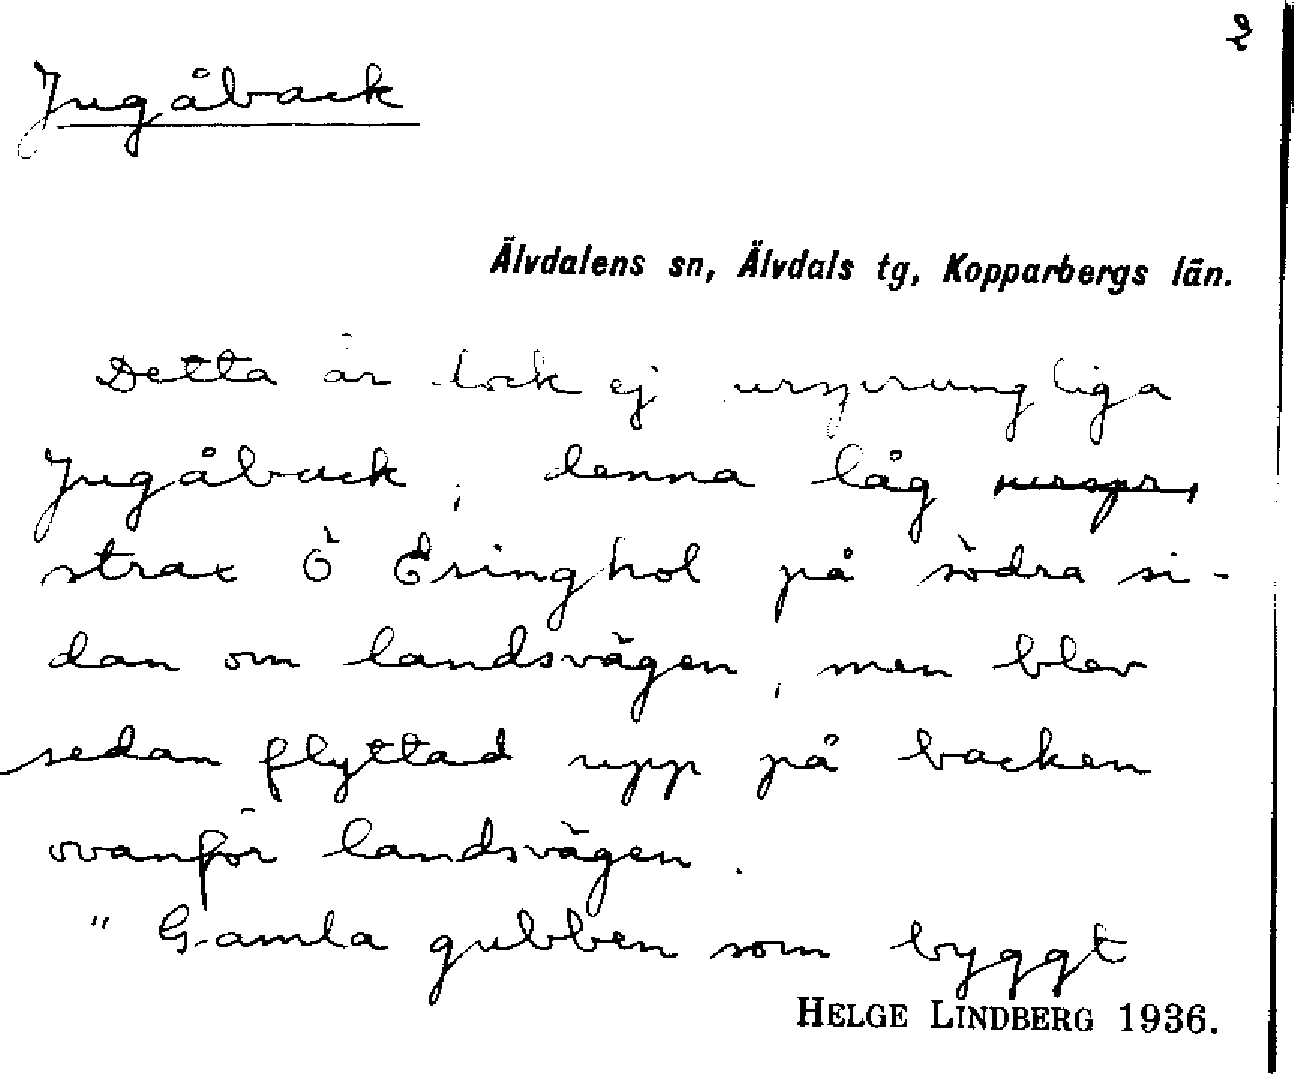 2
Jugåback
Älvdalens sn, Älvdals tg, Kopparbergs län.
Detta är dock ej ursprungliga
Jugåback, denna låg urspr,
strax Ö Esinghol på södra si-
dan om landsvägen, men blev
sedan flyttad upp på backen
ovanför landsvägen.
" Gamla gubben som byggt
HELGE LINDBERG 1936.